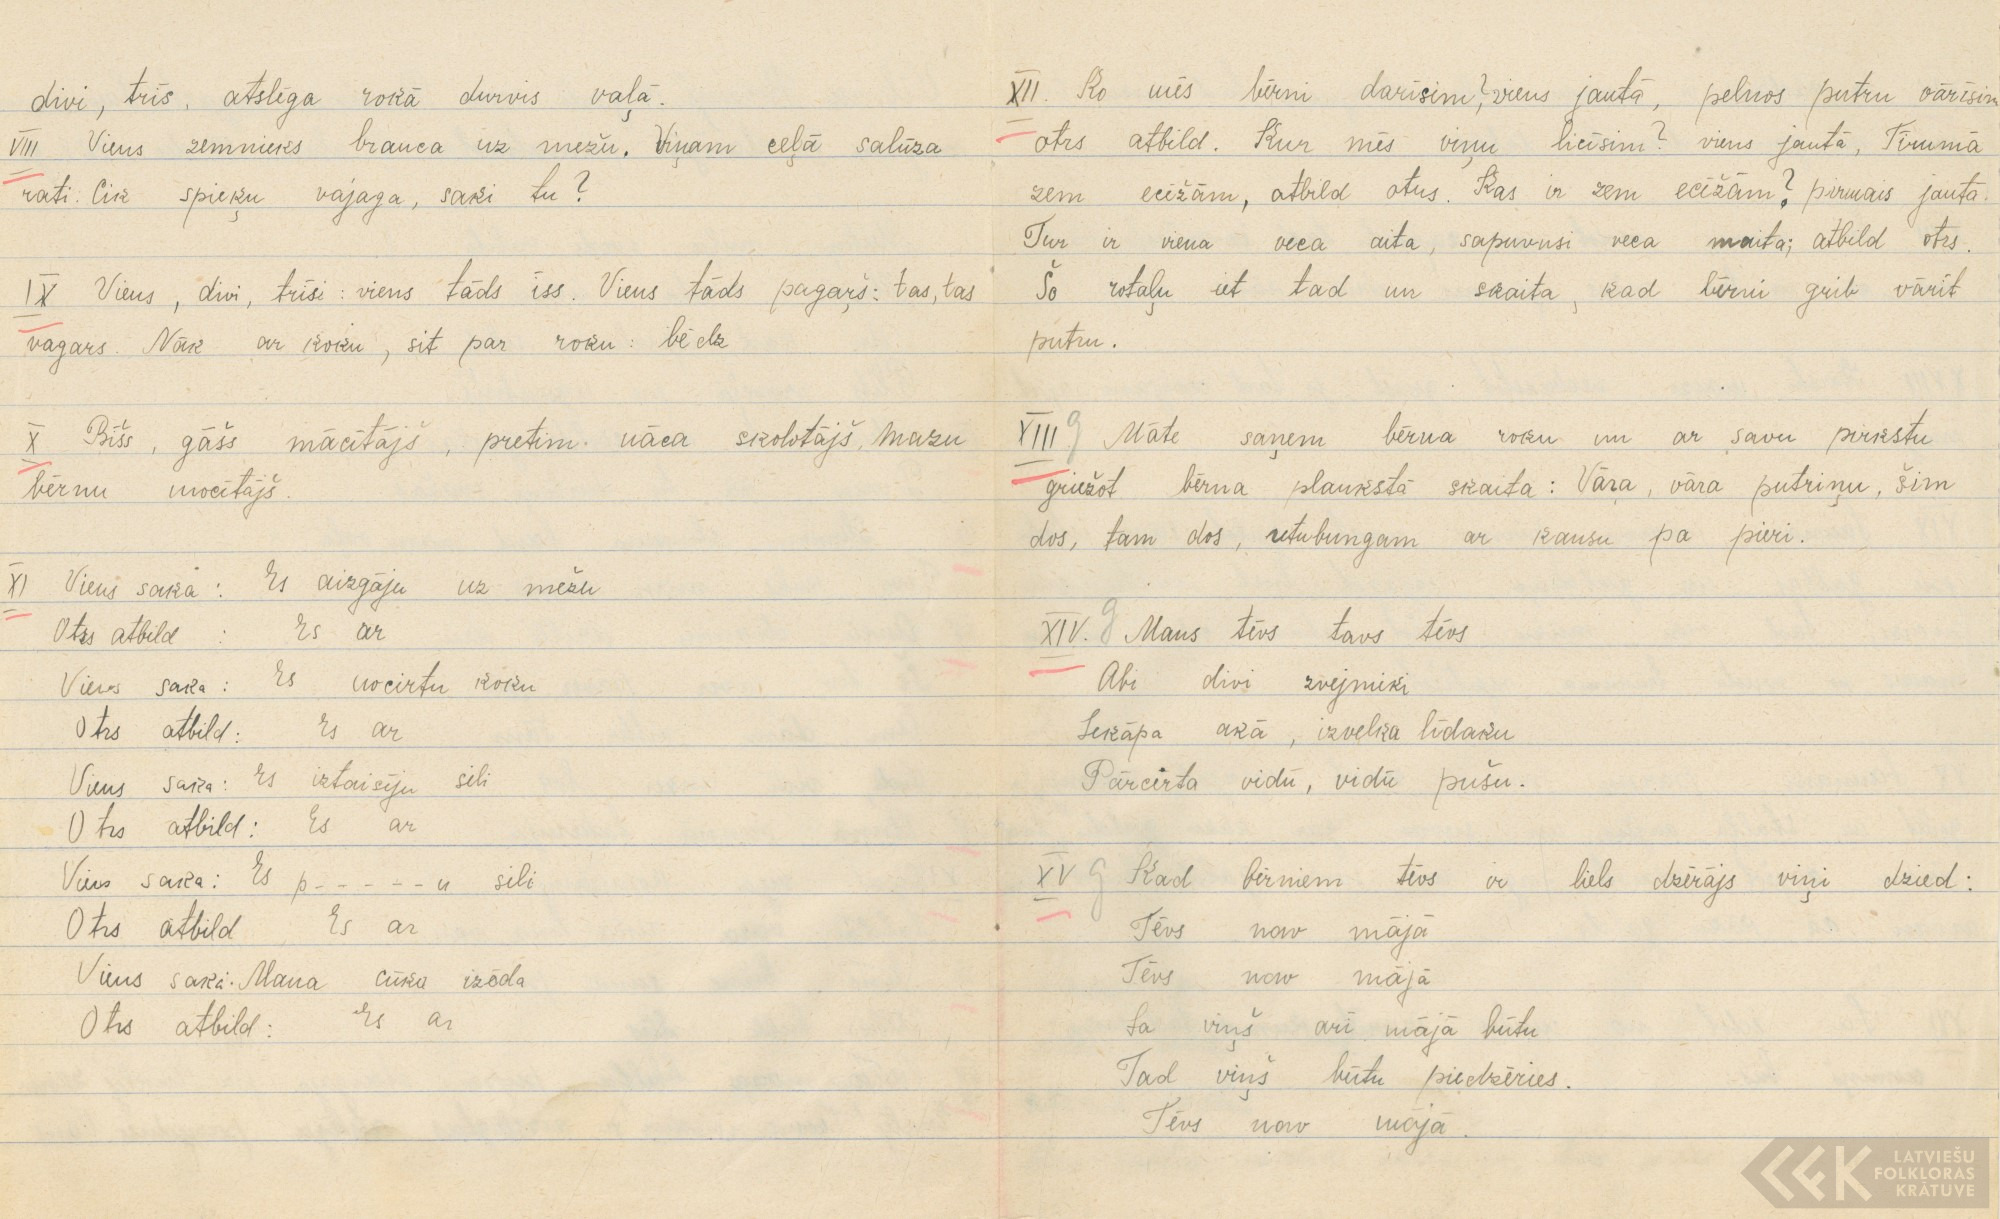 divi, trīs, atslēga rokā durvis vaļā.
VIII Viens zemnieks brauca uz mežu. Viņam ceļā salūza
rati. Cik spieķu vajaga, saki tu?
IX Viens, divi, trīsi: viens tāds īss. Viens tāds pagaŗš: tas, tas
vagars. Nāk ar koku, sit par roku: bēdz
X Bišs, gāšs mācītājš, pretim nāca skolotājš, mazu
bērnu mocītājš.
XI Viens saka: Es aizgāju uz mežu
Otrs atbild: Es ar
Viens saka: Es nocirtu koku
Otrs atbild: Es ar
Viens saka: Es iztaisīju sili
Otrs atbild: Es ar
Viens saka: Es p-----u sili
Otrs atbild Es ar
Viens saka: Mana cūka izēda
Otrs atbild: Es ar
XII. Ko mēs bērni darīsim? viens jautā, pelnos putru vārīsim
otrs atbild. Kur mēs viņu licīsim? viens jautā, Tīrumā
zem ecēžām, atbild otrs. Kas ir zem ecēžām? pirmais jautā.
Tur ir viena veca aita, sapuvusi veca maita; atbild otrs.
Šo rotaļu iet tad un skaita, kad bērni grib vārīt
putru.
XIII g Māte saņem bērna roku un ar savu pirkstu
griežot bērna plaukstā skaita: Vāra, vāra putriņu, šim
dos, tam dos, utubungam ar kausu pa pieri.
XIV. g Mans tēvs tavs tēvs
Abi divi zvejnieki
Iekāpa akā, izvelka līdaku
Pārcirta vidū, vidū pušu.
XV g Kad bērniem tēvs ir liels dzērājs viņi dzied:
Tēvs nav mājā
Tēvs nav mājā
Ja viņš arī mājā būtu
Tad viņš būtu piedzēries.
Tēvs nav mājā.
LATVIEŠU
FOLKLORAS
KRĀTUVE